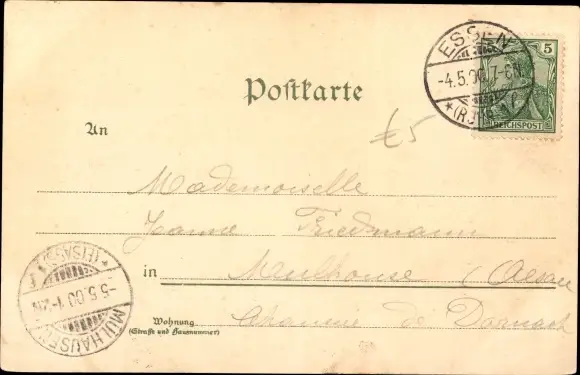 ESSEN
-4.5.00.7-8N.
*(RUHR)*
5
REICHSPOST
Postkarte
£5
An
Mademoiselle
Jeanne Friedmann
in Mulhouse (Alsace
Chaussée de Dornach
Wohnung
(Straße und Hausnummer)
*(ELSASS)*
-5.5.00.1-2N.
MÜLHAUSEN